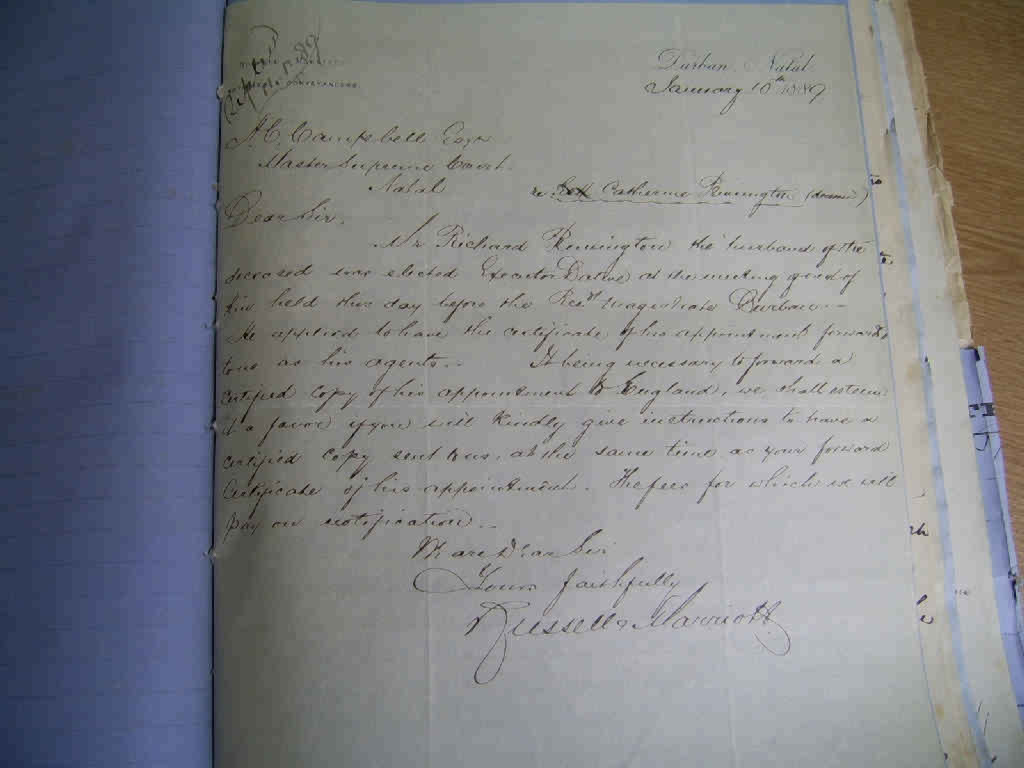 CONVEYANCERS
Durban, Natal
January 10th 1889
A. C. Campbell Esqre
Master Supreme Court
Natal
re Catherine Rimington (deceased)
Dear Sir,
Mr Richard Rimington the husband of the
deceased was elected Executor Dative at the meeting of
kin held this day before the Resdt Magistrate Durban -
He applied to have the certificate of his appointment forwarded
to us as his agents. - It being necessary to forward a
certified copy of his appointment to England, we shall esteem
it a favor if you will kindly give instructions to have a
certified copy sent to us, at the same time as you forward
certificate of his appointment. The fees for which we will
pay on notification. -
We are Dear Sir
Yours faithfully
Russell & Marriott